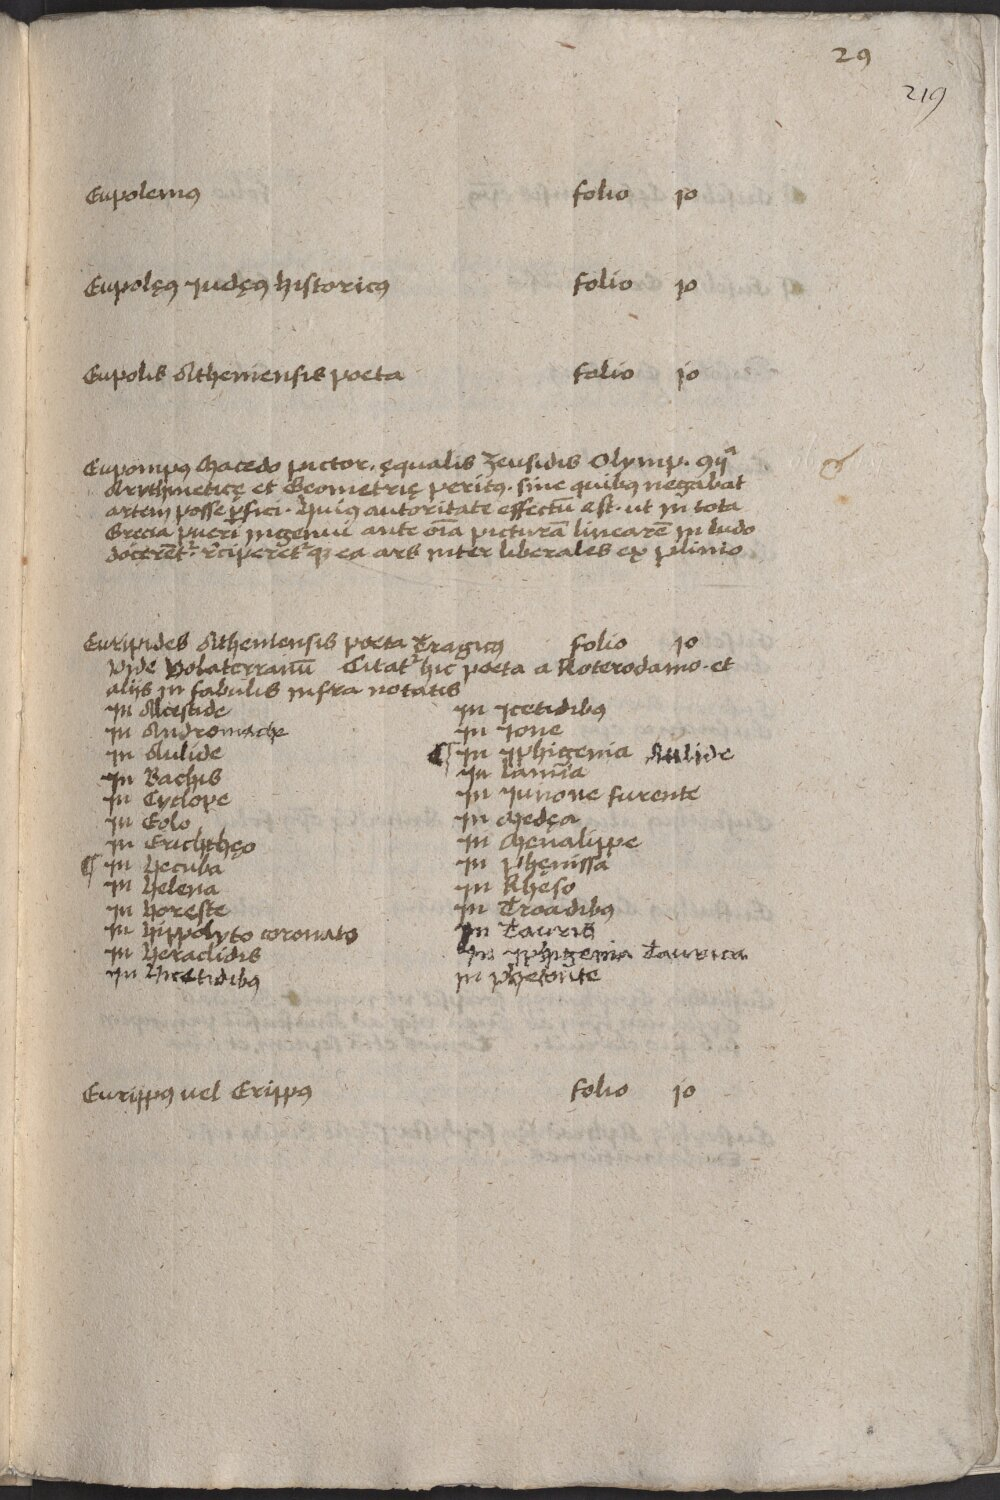 29
219
Eupolemꝰ folio 10
Eupolęꝰ Judęꝰ historicꝰ folio 10
Eupolis Atheniensis poeta folio 10
Eupompꝰ Macedo pictor. ęqualis Zeusidis Olymp.
Arythmeticę et Geometrię peritꝰ. sine quibꝰ negabat
artem posse ꝑfici. Huiꝰ autoritate effectū est. ut in tota
Grecia pueri ingenui ante oīa picturā linearē in ludo
docerēt᷑. reciperet᷑qꝫ ea ars inter liberales ex plinio
Euripides Atheniensis poeta Tragicꝰ folio 10
Vide Volaterranū Citat᷑ hic poeta a Roterodamo. et
alijs in fabulis infra notatis
In Alcestide
In Andromache
In Aulide
In Bachis
In Cyclope
In Eolo
In Erichthęo
In Hecuba
In Helena
In Horeste
In Hippolyto coronato
In Heraclidis
In Hicetidibꝰ
In Icetidibꝰ
In Ione
In Iphigenia Aulide
In Lamīa
In Iunone furente
In Medęa
In Menalippe
In Phęnissa
In Rhęso
In Troadibꝰ
In Tauris
In Iphigenia Taurica
In phetonte
Eurippꝰ uel Erippꝰ folio 10